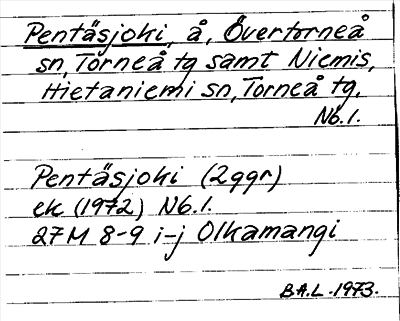 Pentäsjoki, å, Övertorneå
sn, Torneå tg samt Niemis,
Hietaniemi sn, Torneå tg.
Nb. l.
Pentäsjoki (2ggr)
ek (1972) Nb. l.
27M 8-9 i-j Olkamangi
B.A.L. 1973.